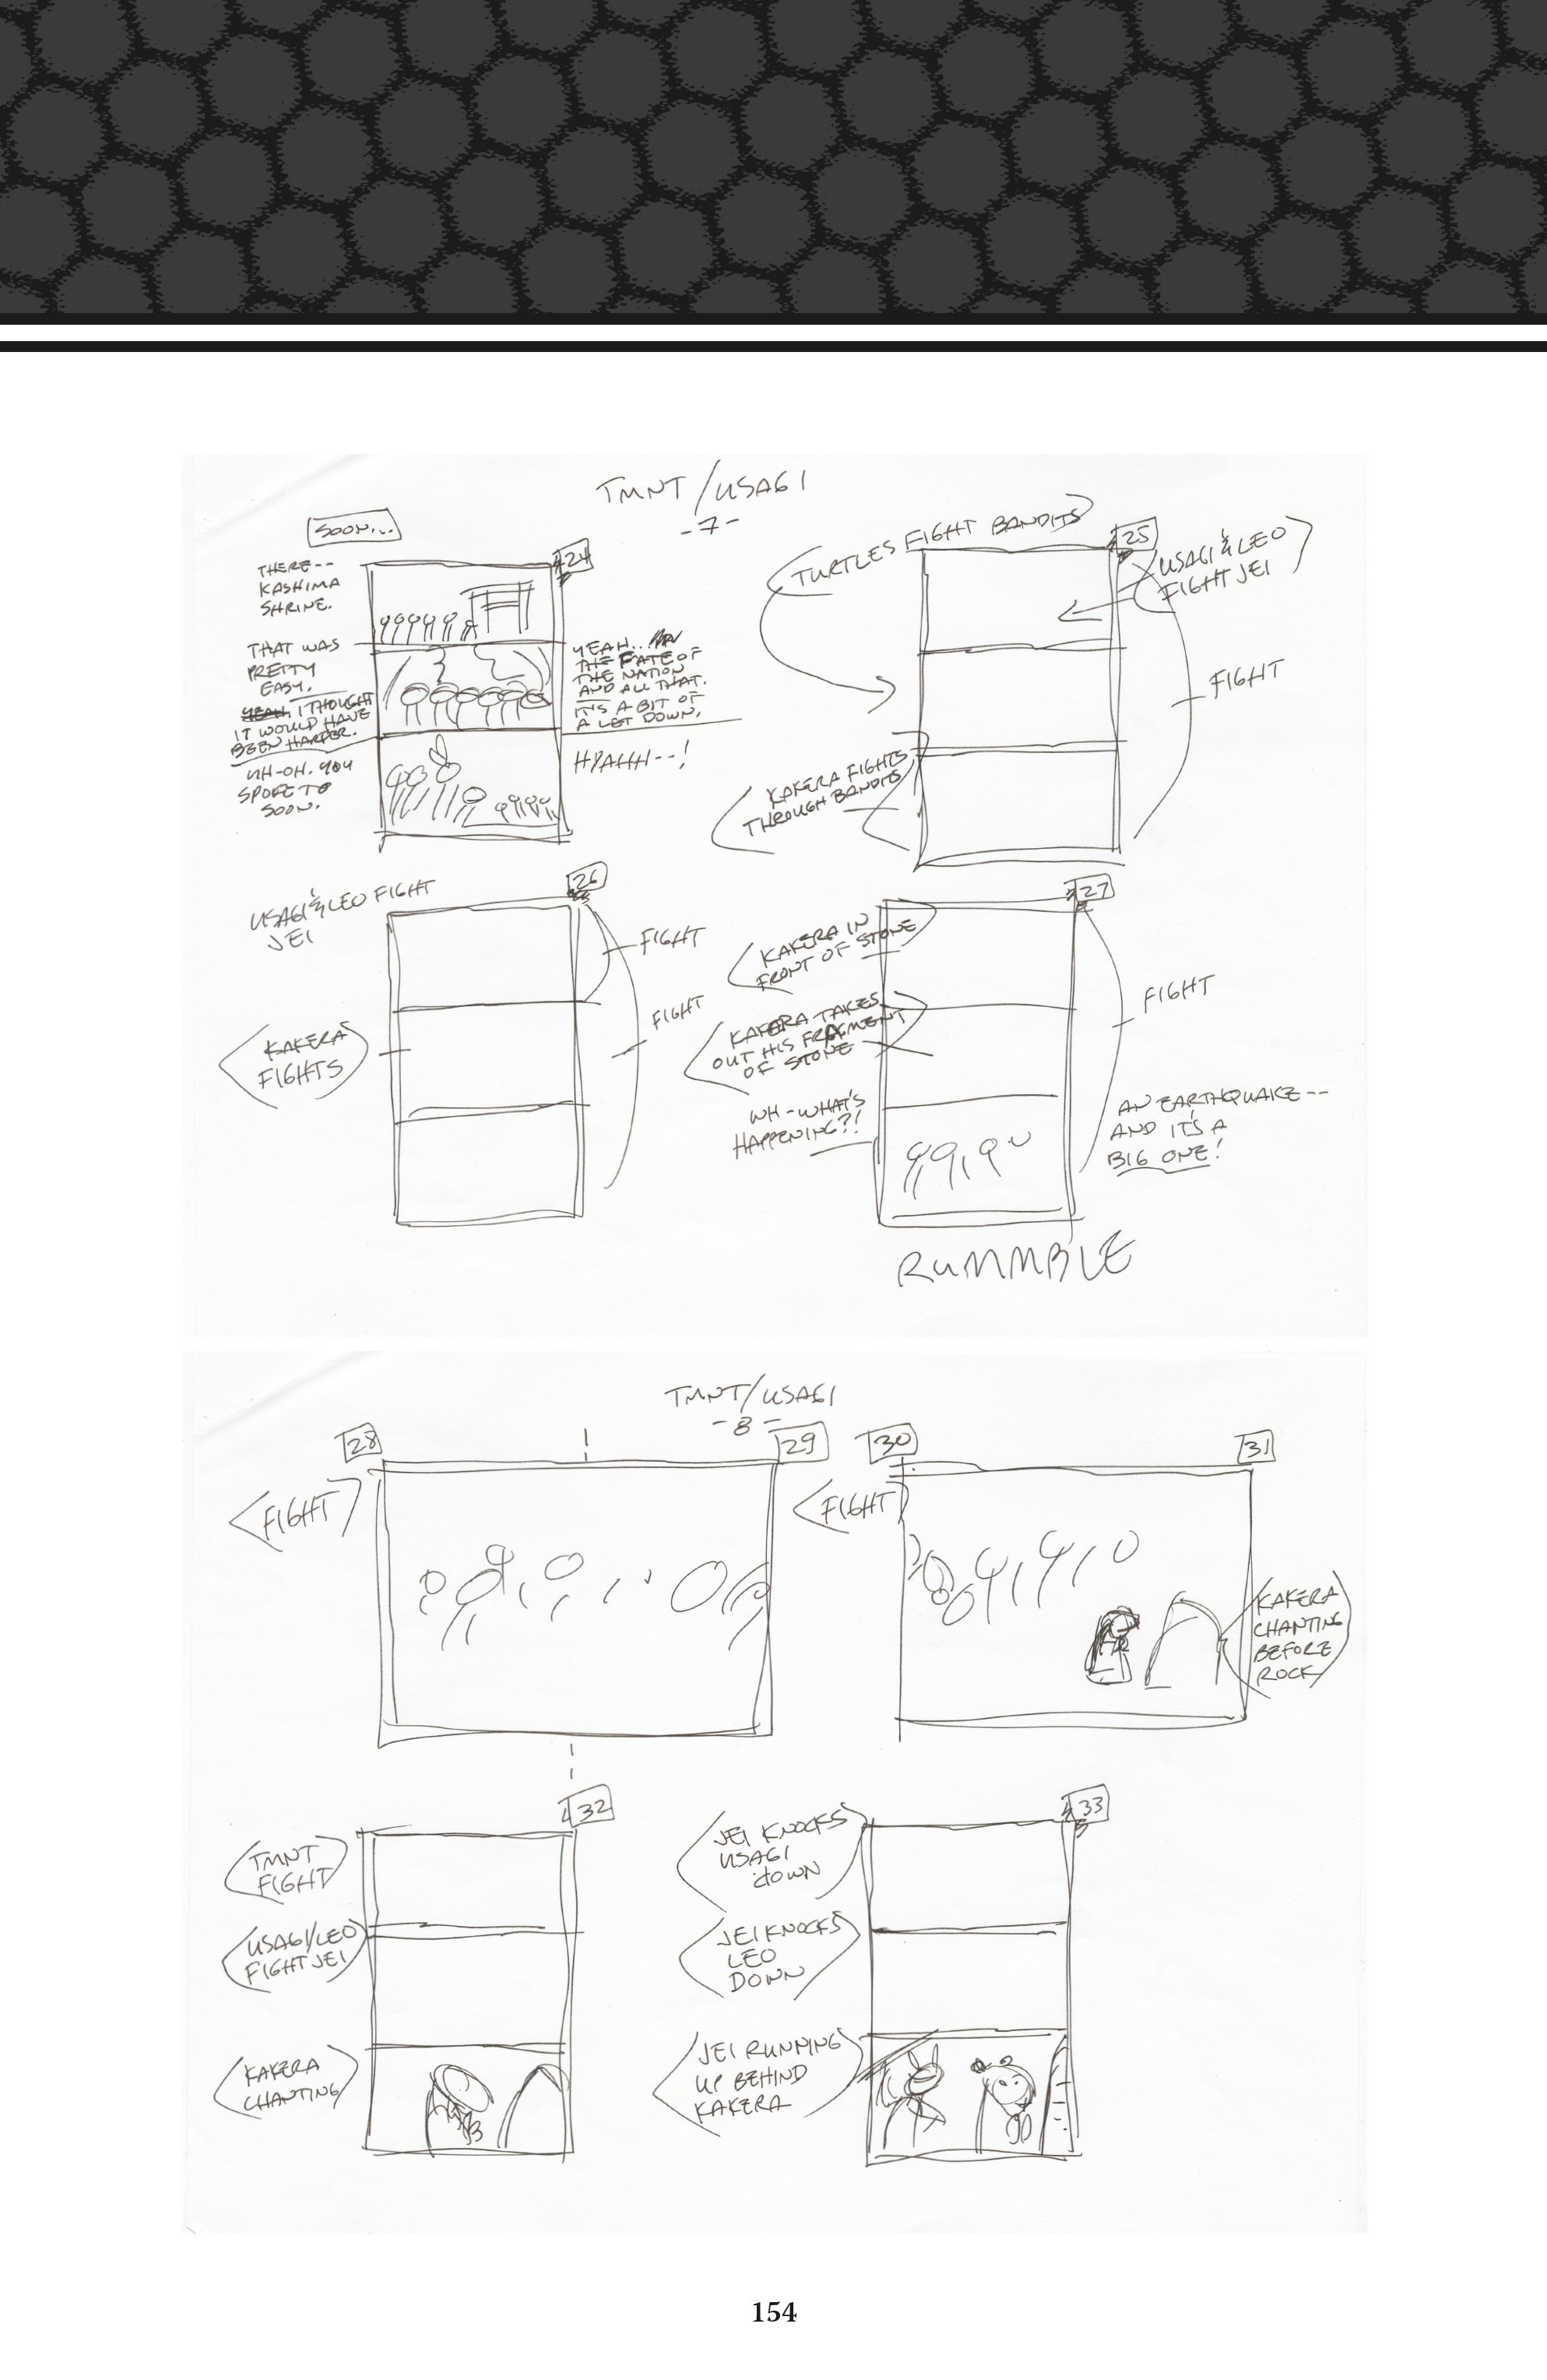 TMNT/USAGI
-7-
SOON...
24
THERE--
KASHIMA
SHRINE.
THAT WAS
PRETTY
EASY.
I THOUGHT
IT WOULD HAVE
BEEN HARDER.
UH-OH. YOU
SPOKE TO
SOON.
YEAH...
THE FATE OF
THE NATION
AND ALL THAT.
IT'S A BIT OF
A LET DOWN.
HYAHH--!
25
TURTLES FIGHT BANDITS
USAGI & LEO
FIGHT JEI
FIGHT
KAKERA FIGHTS
THROUGH BANDITS
26
USAGI & LEO FIGHT
JEI
FIGHT
KAKERA
FIGHTS
FIGHT
27
KAKERA IN
FRONT OF STONE
KAKERA TAKES
OUT HIS FRAGMENT
OF STONE
FIGHT
WH-WHAT'S
HAPPENING?!
AN EARTHQUAKE--
AND IT'S A
BIG ONE!
RUMMMBLE
TMNT/USAGI
-8-
28
29
FIGHT
30
31
FIGHT
KAKERA
CHANTING
BEFORE
ROCK
32
TMNT
FIGHT
USAGI/LEO
FIGHT JEI
KAKERA
CHANTING
33
JEI KNOCKS
USAGI
DOWN
JEI KNOCKS
LEO
DOWN
JEI RUNNING
UP BEHIND
KAKERA
154